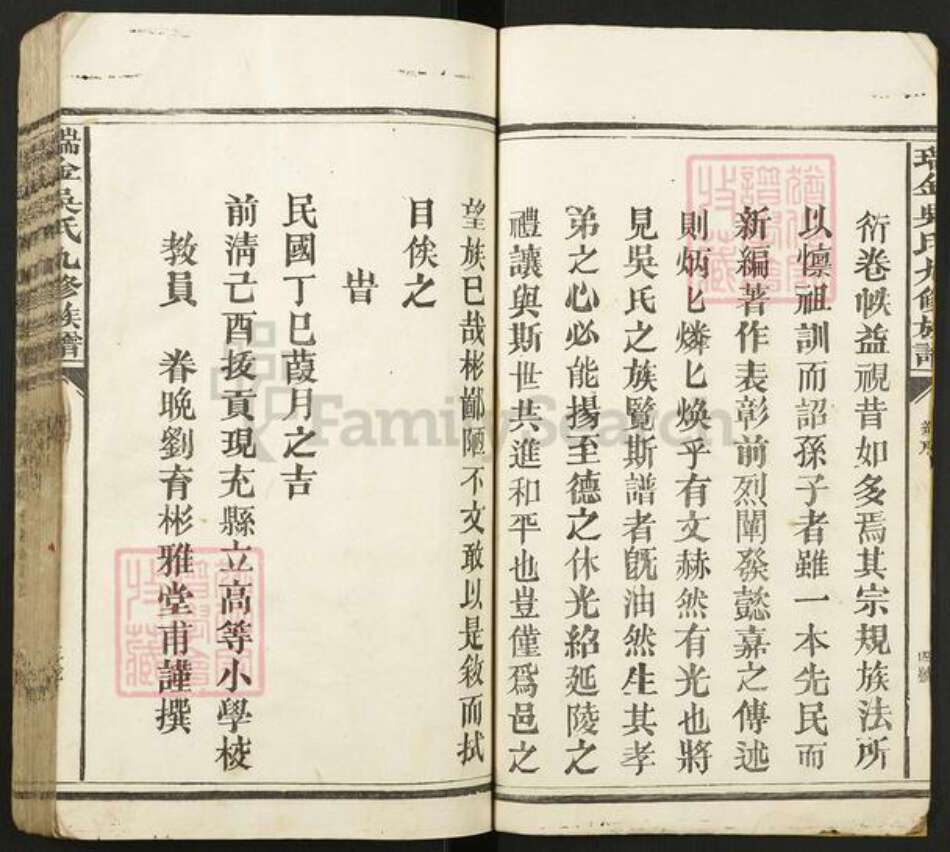 瑞金吳氏九修族譜
衍卷帙益視昔如多焉其宗規族法所
以懍祖訓而詔孫子者雖一本先民而
新編著作表彰前烈闡發懿嘉之傳述
則炳匕燐匕煥乎有文赫然有光也將
見吳氏之族覽斯譜者旣油然生其孝
弟之心必能揚至德之休光紹延陵之
禮讓與斯世共進和平也豈僅爲邑之
望族已哉彬鄙陋不文敢以是敘而拭
目俟之
旹
民國丁巳葭月之吉
前淸己酉拔貢現充縣立高等小學校
教員 眷晚劉育彬雅堂甫謹撰
瑞金吳氏九修族譜
FamilySearch